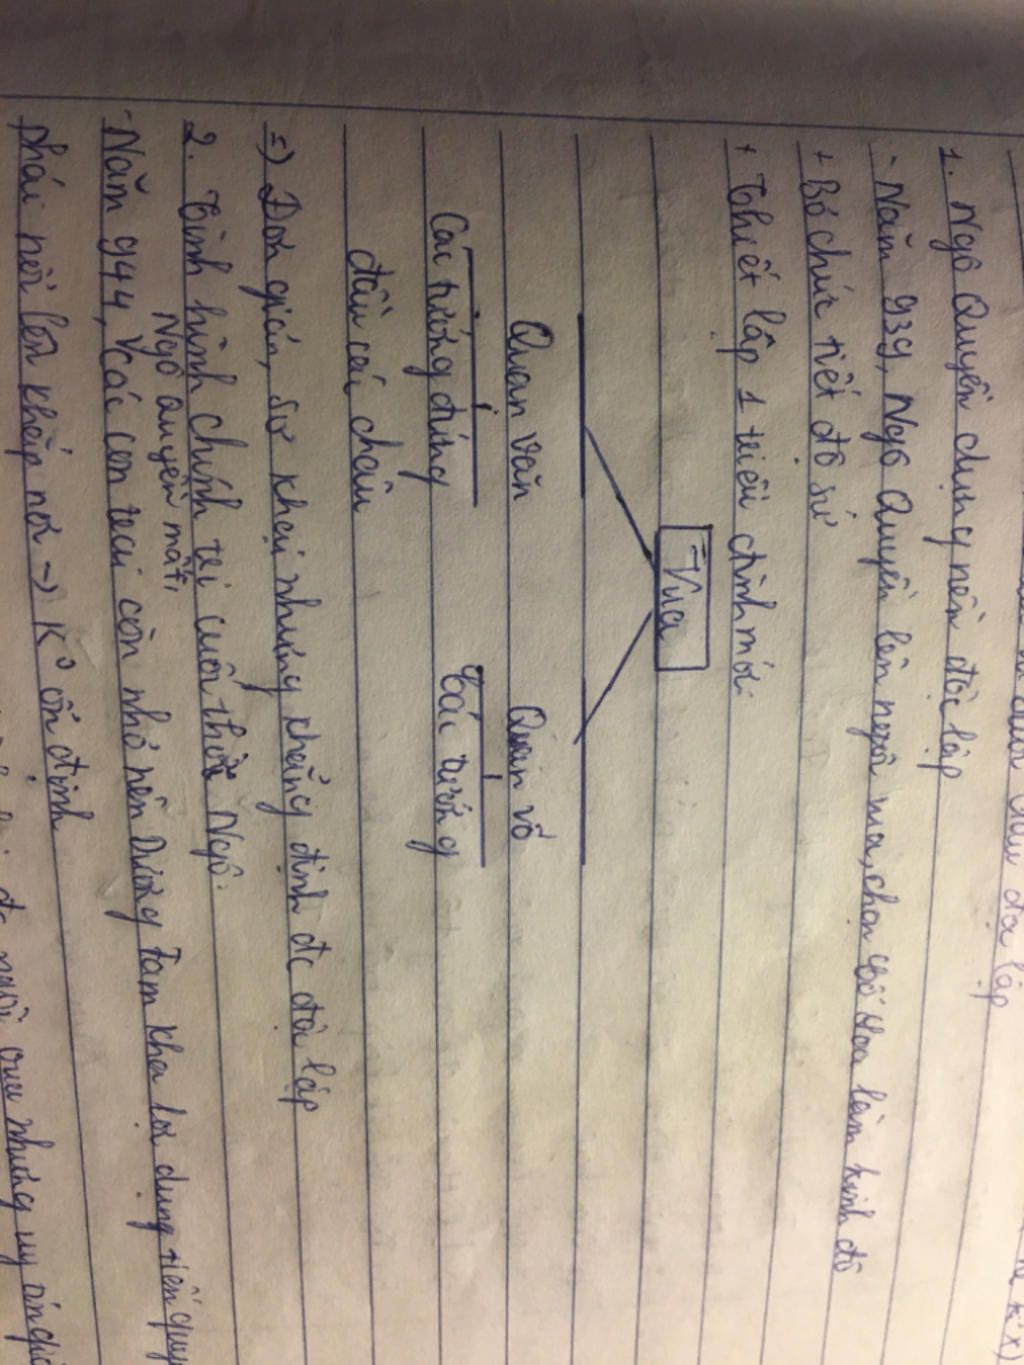 độc lập
1. Ngô Quyền dựng nền độc lập
- Năm 939, Ngô Quyền lên ngôi vua, chọn Cổ Loa làm kinh đô
+ Bỏ chức tiết độ sứ
+ Thiết lập 1 triều đình mới:
Vua
Quan văn Quan võ
Các tướng đứng Các tướng
đầu các châu
=) Đơn giản, sơ khai nhưng khẳng định đc độc lập
2. Tình hình chính trị cuối thời Ngô:
Ngô Quyền mất,
- Năm 944, các con trai còn nhỏ nên Dương Tam Kha lợi dụng tiếm quyền
phái nổi lên khắp nơi -> K° ổn định
nhưng uy tín